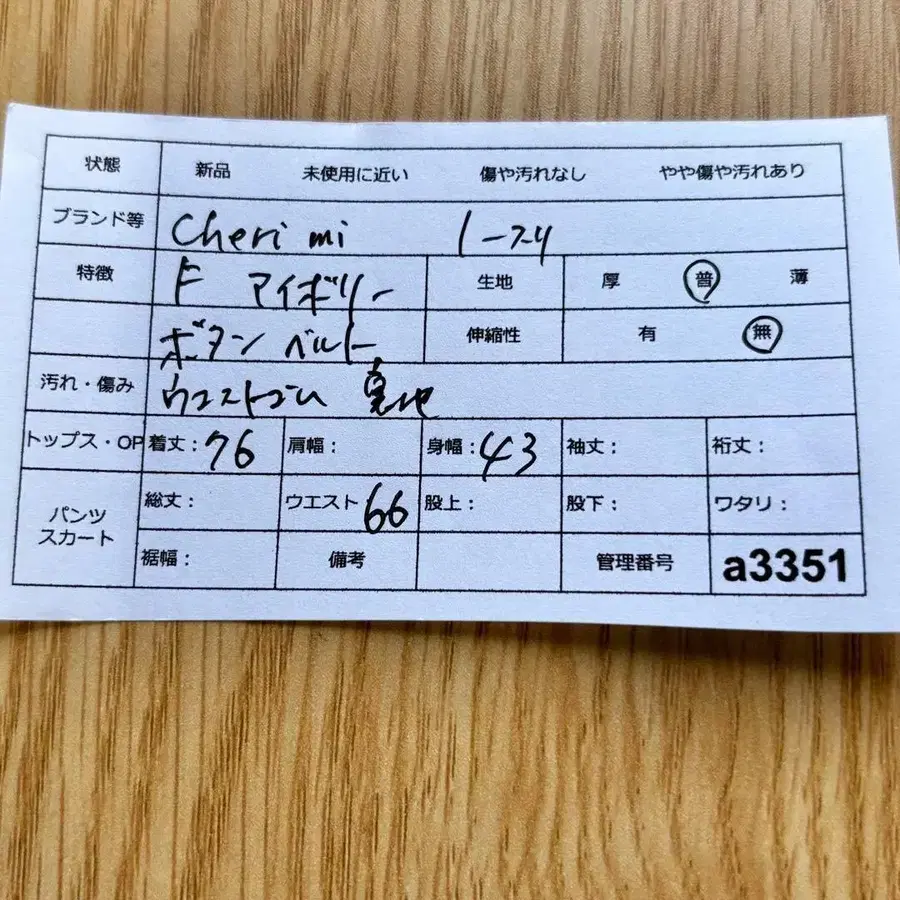 状態 新品 未使用に近い 傷や汚れなし やや傷や汚れあり
ブランド等 Cheri mi
特徴 F アイボリー 生地 厚 普 薄
ボタン ベルト 伸縮性 有 無
汚れ・傷み ウエストゴム 裏地
トップス・OP 着丈：76 肩幅： 身幅：43 袖丈： 裄丈：
パンツ スカート 総丈： ウエスト 66 股上： 股下： ワタリ：
裾幅： 備考 管理番号 a3351